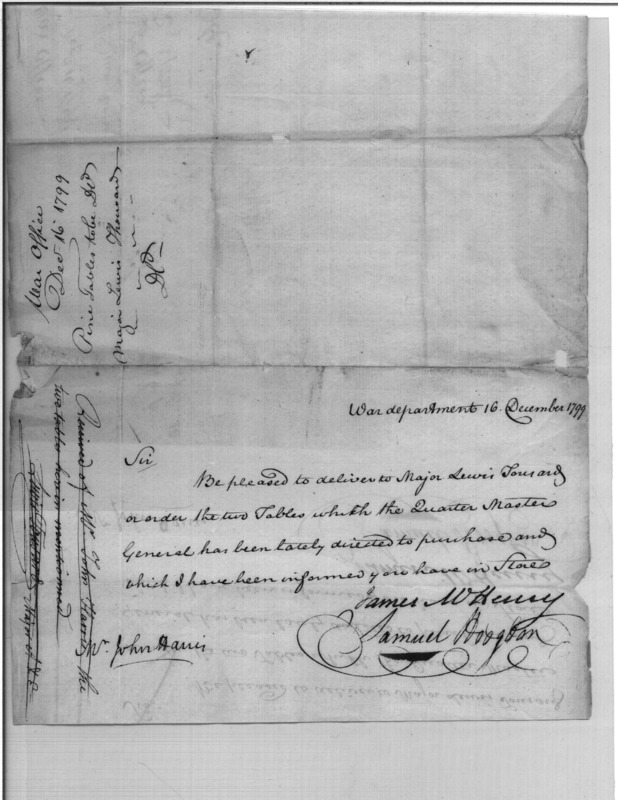 War Office
Decr 16th 1799
Pine Tables to be Dd
Major Lewis Thousard
War department 16. December 1799
Sir
Be pleased to deliver to Major Lewis Tousard
or order the two Tables which the Quarter Master
General has been lately directed to purchase and
which I have been informed you have in Store
James McHenry
Samuel Hodgdon
Mr. John Harris
Received of Mr John Harris the
two tables herein mentioned